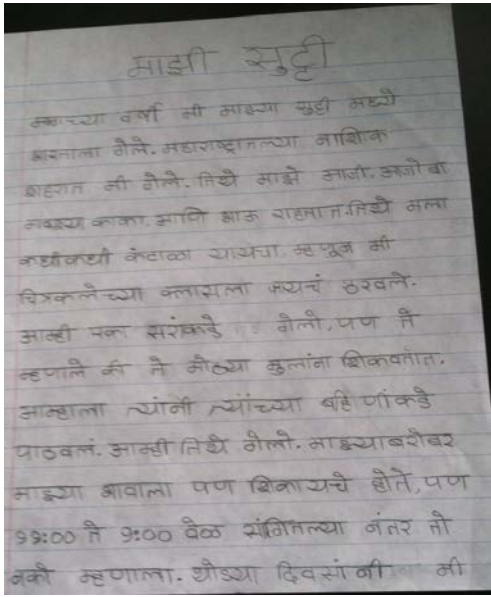 माझी सुट्टी
च्या वर्षी मी माझ्या सुट्टी मध्ये
भारताला गेले. महाराष्ट्रातल्या नाशिक
शहरात मी गेले. तिथे माझे आजी. आजोबा
काका. आणि भाऊ राहतात. तिथे मला
कधीकधी कंटाळा यायचा. म्हणून मी
चित्रकलेच्या क्लासला जायचं ठरवले.
आम्ही एका सरांकडे गेलो, पण ते
म्हणाले की ते मोठ्या मुलांना शिकवतात.
आम्हाला त्यांनी त्यांच्या बहिणींकडे
पाठवलं. आम्ही तिथे गेलो. माझ्याबरोबर
माझ्या भावाला पण शिकायचे होते, पण
११:०० ते १:०० वेळ सांगितल्या नंतर तो
नको म्हणाला. थोड्या दिवसांनी मी